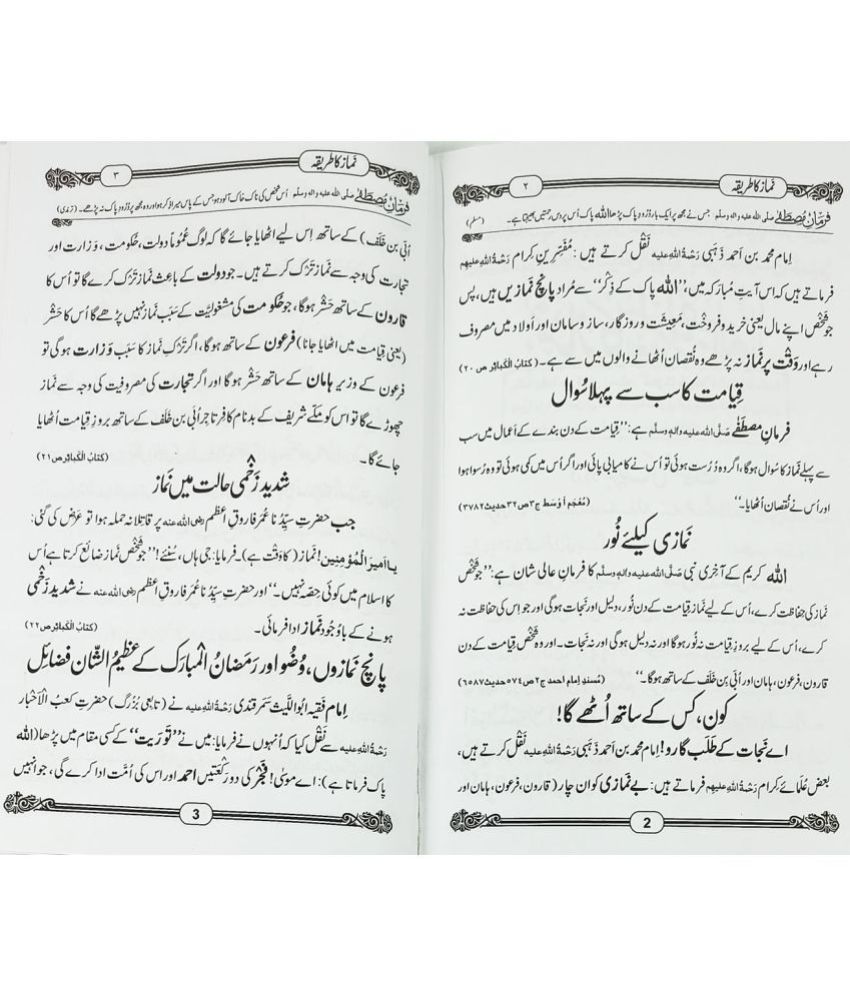 نماز کا طریقہ
۲
فرمانِ مصطفےٰ صلی اللہ علیہ والہ وسلم جس نے مجھ پر ایک بار دُرودِ پاک پڑھا اللہ پاک اُس پر دس رحمتیں بھیجتا ہے۔ (مسلم)
اِمام محمد بن اَحمد ذَہَبی رَحْمَۃُ اللہِ علیہ نَقْل کرتے ہیں: مُفَسِّرینِ کِرام رَحْمَۃُ اللہِ علیہم
فرماتے ہیں کہ اس آیتِ مُبارَکہ میں، ’’اللہ پاک کے ذِکْر‘‘ سے مُراد پانچ نَمازیں ہیں، پس
جو شَخْص اپنے مال یعنی خرید و فروخْت، مَعِیْشَت و روزگار، ساز و سامان اور اَولاد میں مصروف
رہے اور وَقْت پر نَماز نہ پڑھے وہ نُقصان اُٹھانے والوں میں سے ہے۔ (کتابُ الْکبائر ص ۲۰)
قِیامت کا سب سے پہلا سُوال
فرمانِ مصطَفٰے صَلَّی اللہ علیہ والہٖ وسلَّم ہے: ’’قِیامت کے دن بندے کے اَعمال میں سب
سے پہلے نَماز کا سُوال ہوگا، اگر وہ دُرُست ہوئی تو اُس نے کامیابی پائی اور اگر اُس میں کمی ہوئی تو وہ رُسوا ہوا
اور اُس نے نُقصان اُٹھایا۔‘‘ (مُعْجَم اَوْسَط ج۳ ص۳۲ حدیث ۳۷۸۲)
نَمازی کیلئے نُور
اللہ کریم کے آخِری نبی صَلَّی اللہ علیہ والہٖ وسلَّم کا فرمانِ عالی شان ہے: ’’جو شَخْص
نَماز کی حِفاظت کرے، اُس کے لیے نَماز قِیامت کے دن نُور، دلیل اور نَجات ہوگی اور جو اِس کی حفاظت نہ
کرے، اُس کے لیے بروزِ قِیامت نہ نُور ہوگا اور نہ دلیل ہوگی اور نہ نَجات۔ اور وہ شَخْص قِیامت کے دن
قارون، فرعون، ہامان اور اُبَی بن خَلَف کے ساتھ ہوگا۔‘‘ (مُسندِ امام احمد ج۲ ص۵۷۴ حدیث ۶۵۸۷)
کون، کس کے ساتھ اُٹھے گا!
اے نَجات کے طَلَب گارو! اِمام محمد بن اَحمد ذَہَبی رَحْمَۃُ اللہِ علیہ نَقْل کرتے ہیں،
بعض عُلَمائے کِرام رَحْمَۃُ اللہِ علیہم فرماتے ہیں: بے نَمازی کو اُن چار (قارون، فرعون، ہامان اور
2
نماز کا طریقہ
۳
فرمانِ مصطفےٰ صلی اللہ علیہ والہ وسلم اُس شخص کی ناک خاک آلود ہو جس کے پاس میرا ذِکر ہو اور وہ مجھ پر دُرودِ پاک نہ پڑھے۔ (ترمذی)
اُبَی بن خَلَف) کے ساتھ اِس لیے اُٹھایا جائے گا کہ لوگ عُمُوماً دولت، حُکومت، وَزارت اور
تجارت کی وجہ سے نَماز تَرْک کرتے ہیں۔ جو دولت کے باعث نَماز تَرْک کرے گا تو اُس کا
قارون کے ساتھ حَشْر ہوگا، جو حُکومت کی مشغولیّت کے سَبَب نَماز نہیں پڑھے گا اُس کا حَشْر
(یعنی قیامت میں اُٹھایا جانا) فرعون کے ساتھ ہوگا، اگر تَرْکِ نَماز کا سَبَب وَزارت ہوگی تو
فرعون کے وزیر ہامان کے ساتھ حَشْر ہوگا اور اگر تجارت کی مصروفیت کی وجہ سے نَماز
چھوڑے گا تو اس کو مکّے شریف کے بدنام کافر تاجر اُبَی بن خَلَف کے ساتھ بروزِ قِیامت اُٹھایا
جائے گا۔ (کتابُ الْکبائر ص ۲۱)
شدید زَخْمی حالت میں نَماز
جب حضرتِ سیِّدُنا عُمَر فاروقِ اَعْظَم رضی اللہ عنہ پر قاتِلانہ حملہ ہوا تو عَرْض کی گئی:
یا اَمیرَ الْمُؤْمِنِین! نَماز (کا وَقْت ہے)۔ فرمایا: جی ہاں، سُنئے! ’’جو شَخْص نَماز ضائع کرتا ہے اُس
کا اسلام میں کوئی حِصّہ نہیں۔‘‘ اور حضرتِ سیِّدُنا عُمَر فاروقِ اَعْظَم رضی اللہ عنہ نے شدید زَخْمی
ہونے کے باوُجُود نَماز ادا فرمائی۔ (کتابُ الْکبائر ص ۲۲)
پانچ نَمازوں، وُضُو اور رَمَضانُ الْمُبارَک کے عظیمُ الشّان فضائل
اِمام فقیہ ابُواللَّیث سَمَرقندی رَحْمَۃُ اللہِ علیہ نے (تابِعی بُزُرگ) حضرتِ کعبُ الْاَحبار
رَحْمَۃُ اللہِ علیہ سے نَقْل کیا کہ اُنہوں نے فرمایا: میں نے ’’تَورَیت‘‘ کے کسی مقام میں پڑھا (اللہ
پاک فرماتا ہے): اے موسیٰ! فَجْر کی دو رَکْعَتیں احمد اور اس کی اُمَّت ادا کرے گی، جو انہیں
3